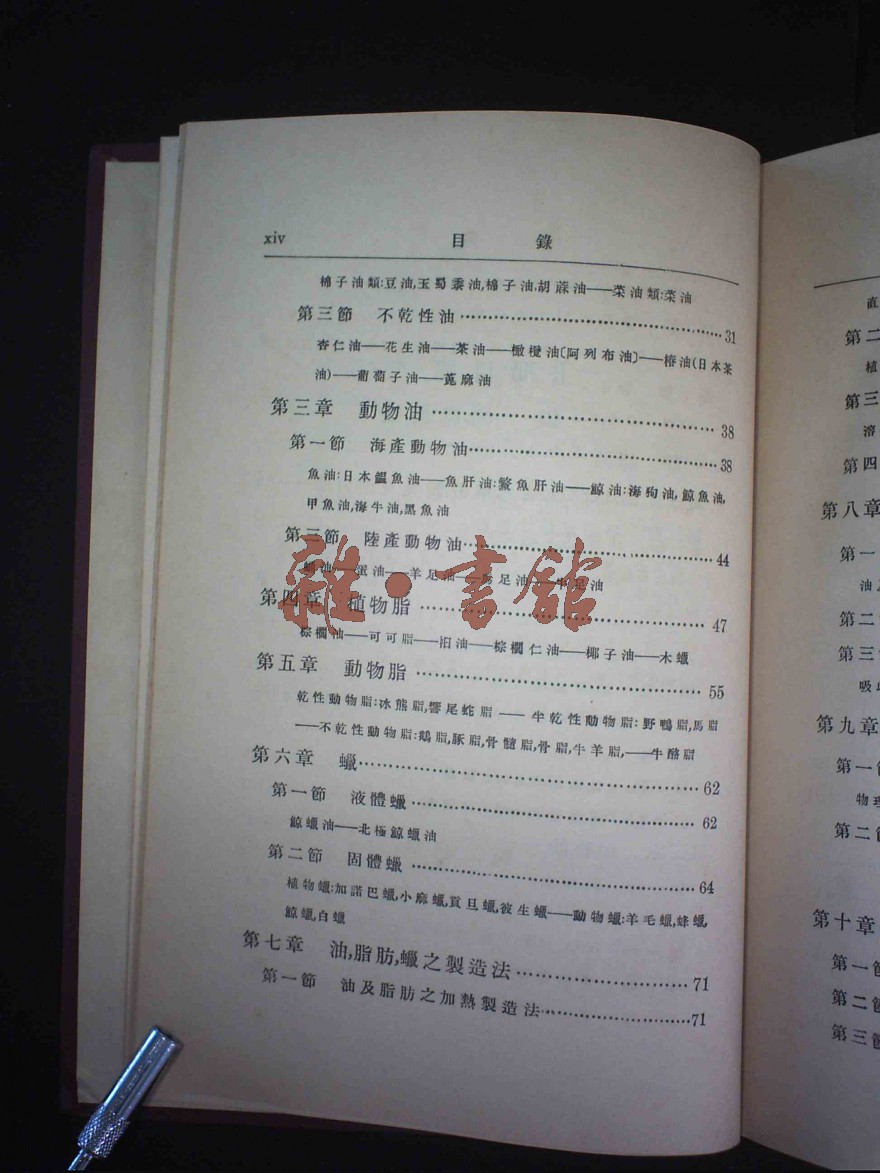 xiv 目錄
棉子油類:豆油,玉蜀黍油,棉子油,胡蔴油——菜油類:菜油
第三節 不乾性油 31
杏仁油——花生油——茶油——橄欖油〔阿列布油〕——椿油(日本茶
油)——葡萄子油——蓖麻油
第三章 動物油 38
第一節 海產動物油 38
魚油:日本鰮魚油——魚肝油:鱉魚肝油——鯨油:海狗油,鯨魚油,
甲魚油,海牛油,黑魚油
第二節 陸產動物油 44
蛋油——羊足油——馬足油——牛足油
第四章 植物脂 47
棕櫚油——可可脂——桕油——棕櫚仁油——椰子油——木蠟
第五章 動物脂 55
乾性動物脂:冰熊脂,響尾蛇脂——半乾性動物脂:野鴨脂,馬脂
——不乾性動物脂:鵝脂,豚脂,骨髓脂,骨脂,牛羊脂,——牛酪脂
第六章 蠟 62
第一節 液體蠟 62
鯨蠟油——北極鯨蠟油
第二節 固體蠟 64
植物蠟:加諾巴蠟,小麻蠟,貢旦蠟,彼生蠟——動物蠟:羊毛蠟,蜂蠟,
鯨蠟,白蠟
第七章 油,脂肪,蠟之製造法 71
第一節 油及脂肪之加熱製造法 71
雜·書館
直
第二
植
第三
溶
第四
第八章
第一
油及
第二
第三
吸
第九章
第一節
物理
第二節
第十章
第一節
第二節
第三節